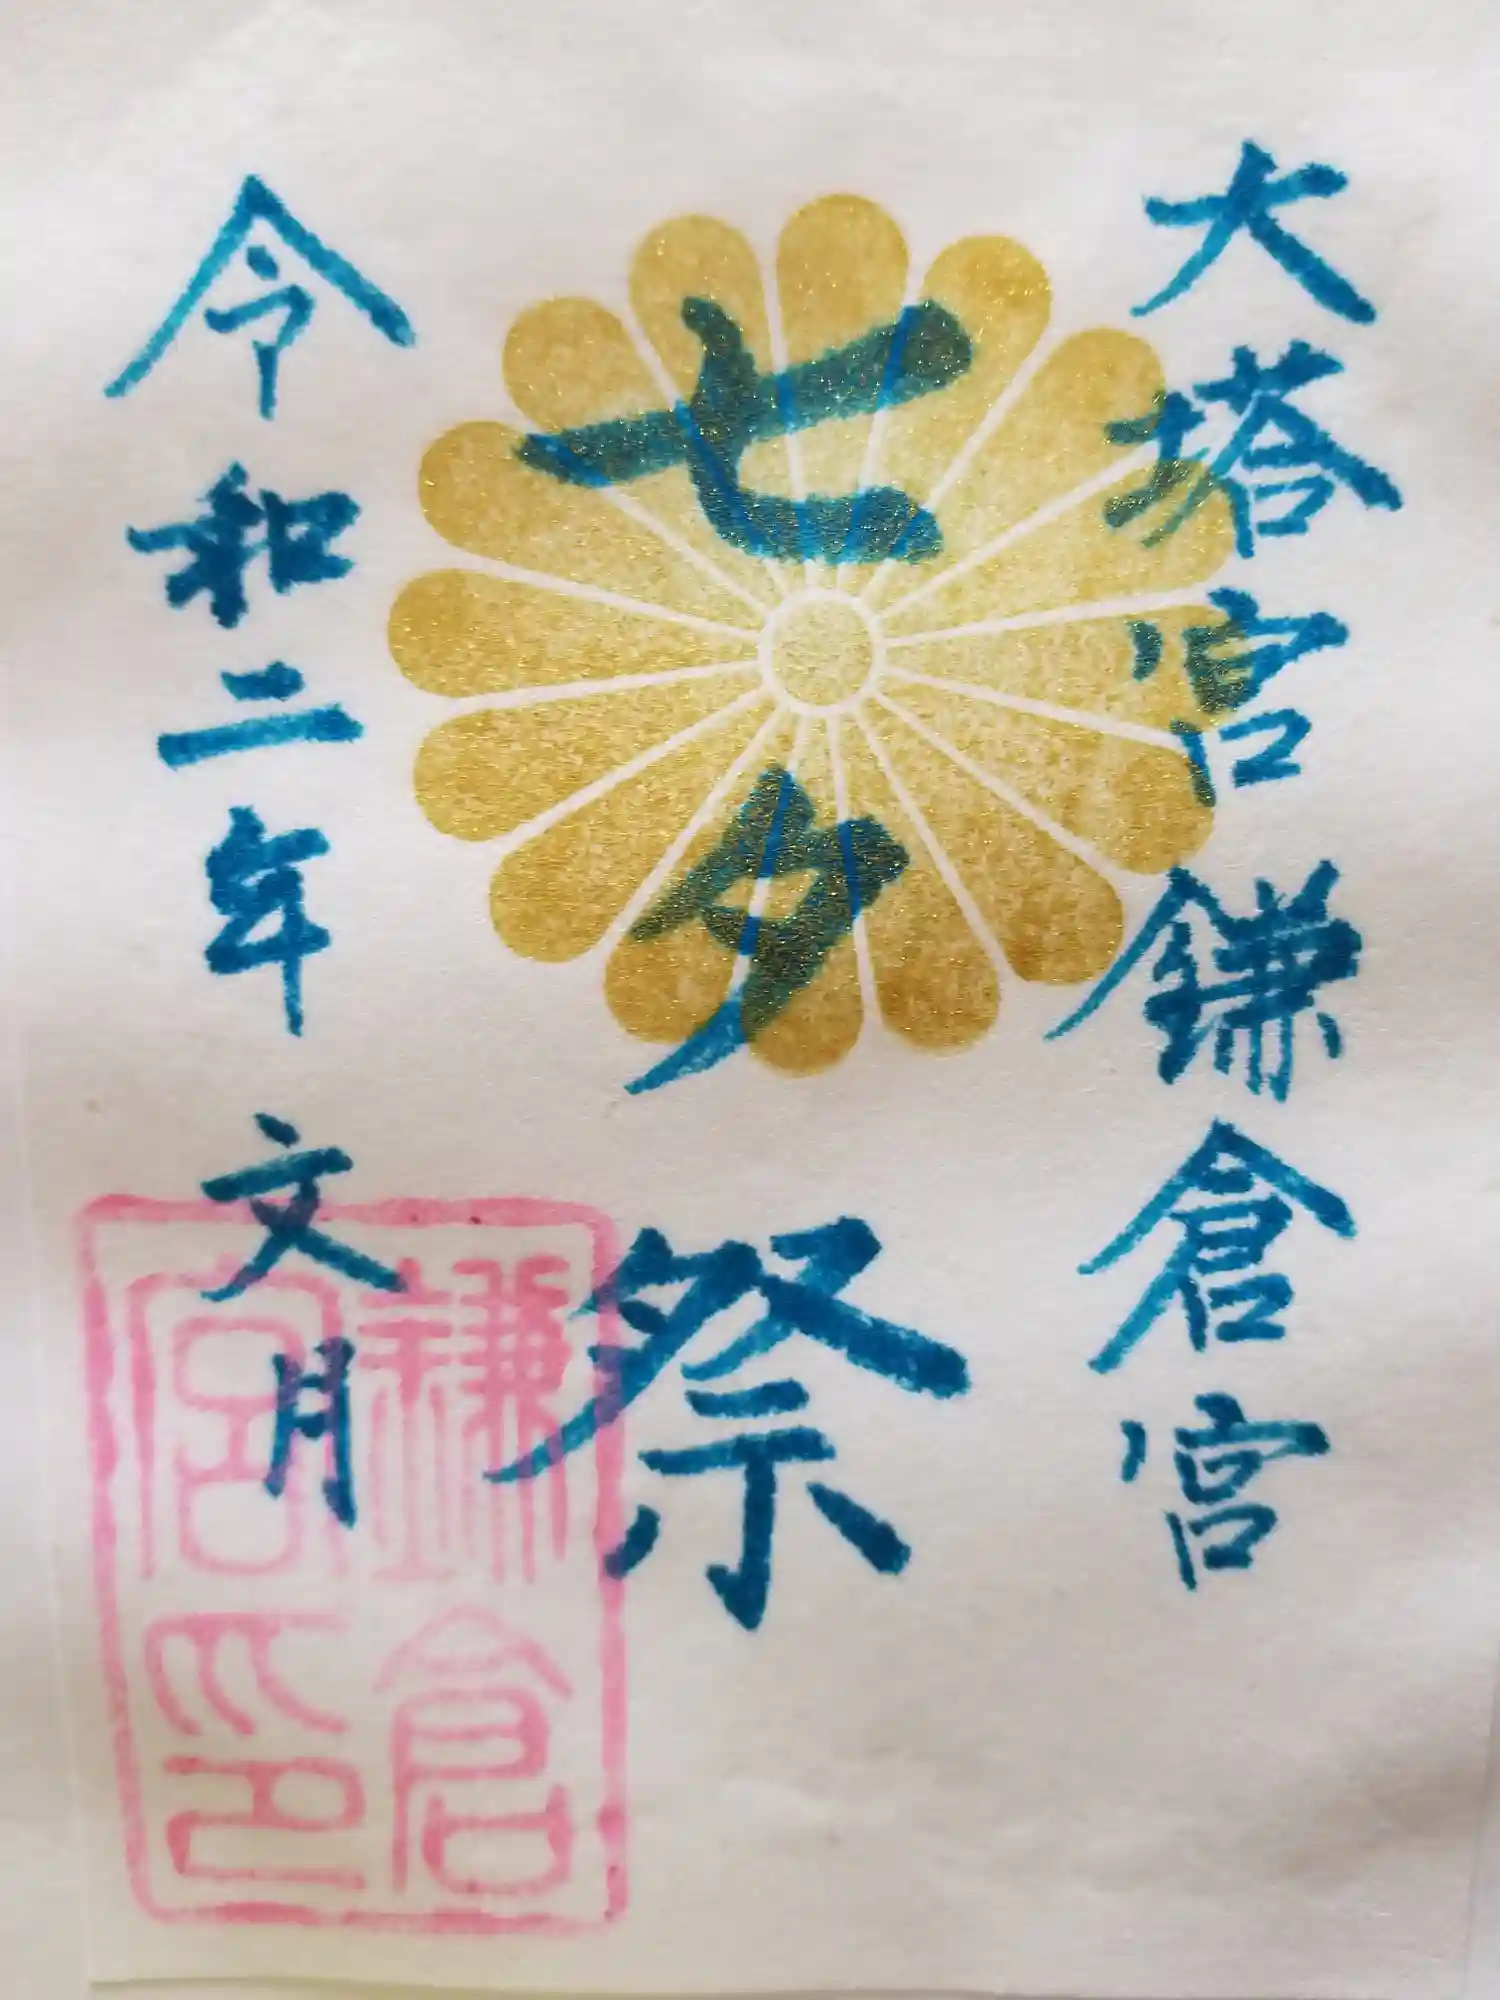 大塔宮鎌倉宮
七夕祭
令和二年文月
鎌倉宮印